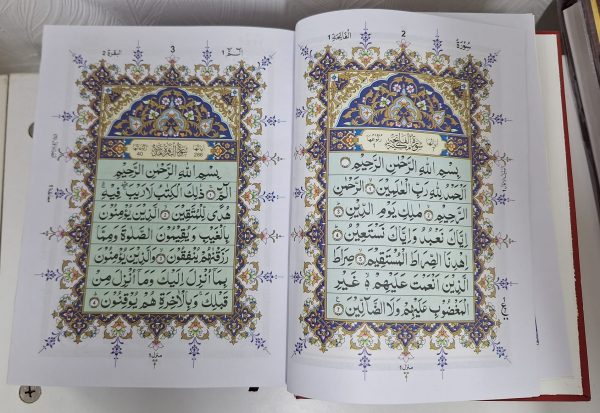 سُوْرَة
2
الْفَاتِحَة 1
بِسْمِ اللّٰهِ الرَّحْمٰنِ الرَّحِيْمِ
اَلْحَمْدُ لِلّٰهِ رَبِّ الْعٰلَمِيْنَ ۝ الرَّحْمٰنِ
الرَّحِيْمِ ۝ مٰلِكِ يَوْمِ الدِّيْنِ ۝
اِيَّاكَ نَعْبُدُ وَاِيَّاكَ نَسْتَعِيْنُ ۝
اِهْدِنَا الصِّرَاطَ الْمُسْتَقِيْمَ ۝ صِرَاطَ
الَّذِيْنَ اَنْعَمْتَ عَلَيْهِمْ غَيْرِ
الْمَغْضُوْبِ عَلَيْهِمْ وَلَا الضَّآلِّيْنَ ۝
الٓمّٓ 1
3
البقرة 2
بِسْمِ اللّٰهِ الرَّحْمٰنِ الرَّحِيْمِ
الٓمّٓ ۝ ذٰلِكَ الْكِتٰبُ لَا رَيْبَ فِيْهِ
هُدًى لِّلْمُتَّقِيْنَ ۝ الَّذِيْنَ يُؤْمِنُوْنَ
بِالْغَيْبِ وَيُقِيْمُوْنَ الصَّلٰوةَ وَمِمَّا
رَزَقْنٰهُمْ يُنْفِقُوْنَ ۝ وَالَّذِيْنَ يُؤْمِنُوْنَ
بِمَآ اُنْزِلَ اِلَيْكَ وَمَآ اُنْزِلَ مِنْ
قَبْلِكَ وَبِالْاٰخِرَةِ هُمْ يُوْقِنُوْنَ ۝